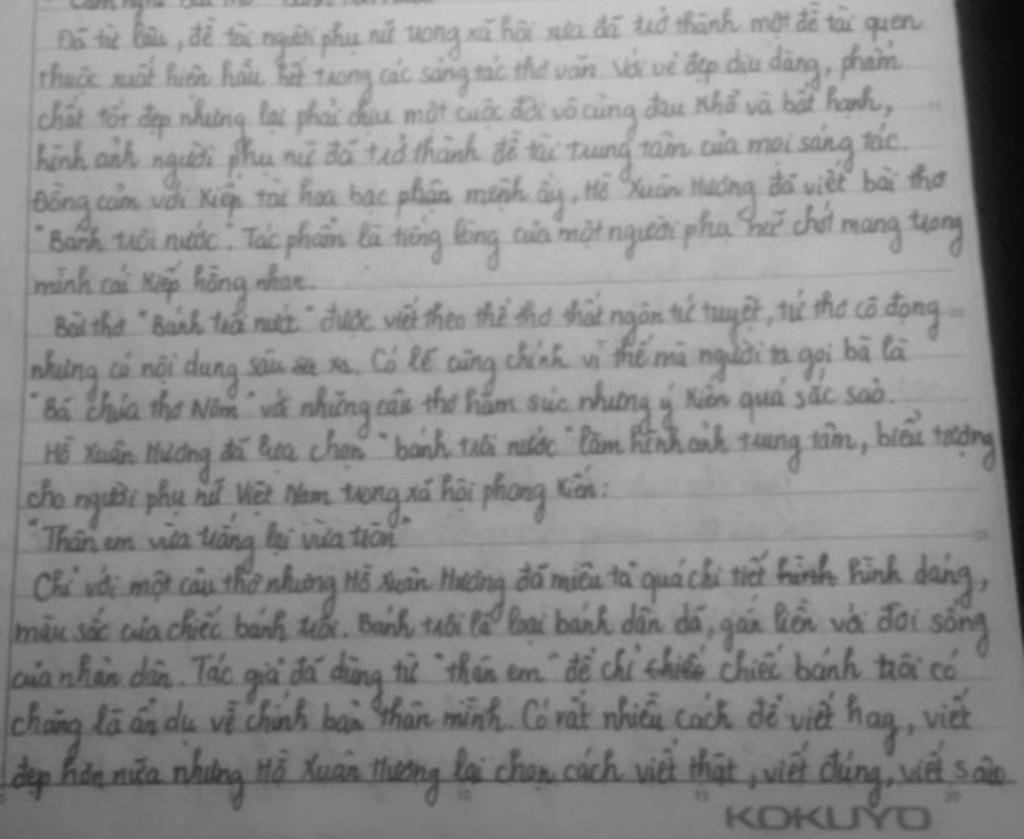 Cảm nghĩ bài thơ
Đã từ lâu, đề tài người phụ nữ trong xã hội xưa đã trở thành một đề tài quen
thuộc xuất hiện hầu hết trong các sáng tác thơ văn. Với vẻ đẹp dịu dàng, phẩm
chất tốt đẹp nhưng lại phải chịu một cuộc đời vô cùng đau khổ và bất hạnh,
hình ảnh người phụ nữ đã trở thành đề tài trung tâm của mọi sáng tác.
Đồng cảm với kiếp tài hoa bạc phận mệnh ấy, Hồ Xuân Hương đã viết bài thơ
"Bánh trôi nước". Tác phẩm là tiếng lòng của một người phụ nữ chót mang trong
mình cái kiếp hồng nhan.
Bài thơ "Bánh trôi nước" được viết theo thể thơ thất ngôn tứ tuyệt, tứ thơ cô đọng
nhưng có nội dung sâu xa. Có lẽ cũng chính vì thế mà người ta gọi bà là
"Bà chúa thơ Nôm" với những câu thơ hàm súc nhưng ý kiến quá sắc sảo.
Hồ Xuân Hương đã lựa chọn "bánh trôi nước" làm hình ảnh trung tâm, biểu tượng
cho người phụ nữ Việt Nam trong xã hội phong kiến:
"Thân em vừa trắng lại vừa tròn"
Chỉ với một câu thơ nhưng Hồ Xuân Hương đã miêu tả quá chi tiết hình hình dáng,
màu sắc của chiếc bánh trôi. Bánh trôi là loại bánh dân dã, gắn liền với đời sống
của nhân dân. Tác giả đã dùng từ "thân em" để chỉ chiếc chiếc bánh trôi có
chăng là ẩn dụ về chính bản thân mình. Có rất nhiều cách để viết hay, viết
đẹp hơn nữa nhưng Hồ Xuân Hương lại chọn cách viết thật, viết đúng, viết sao
10 15 20
KOKUYO